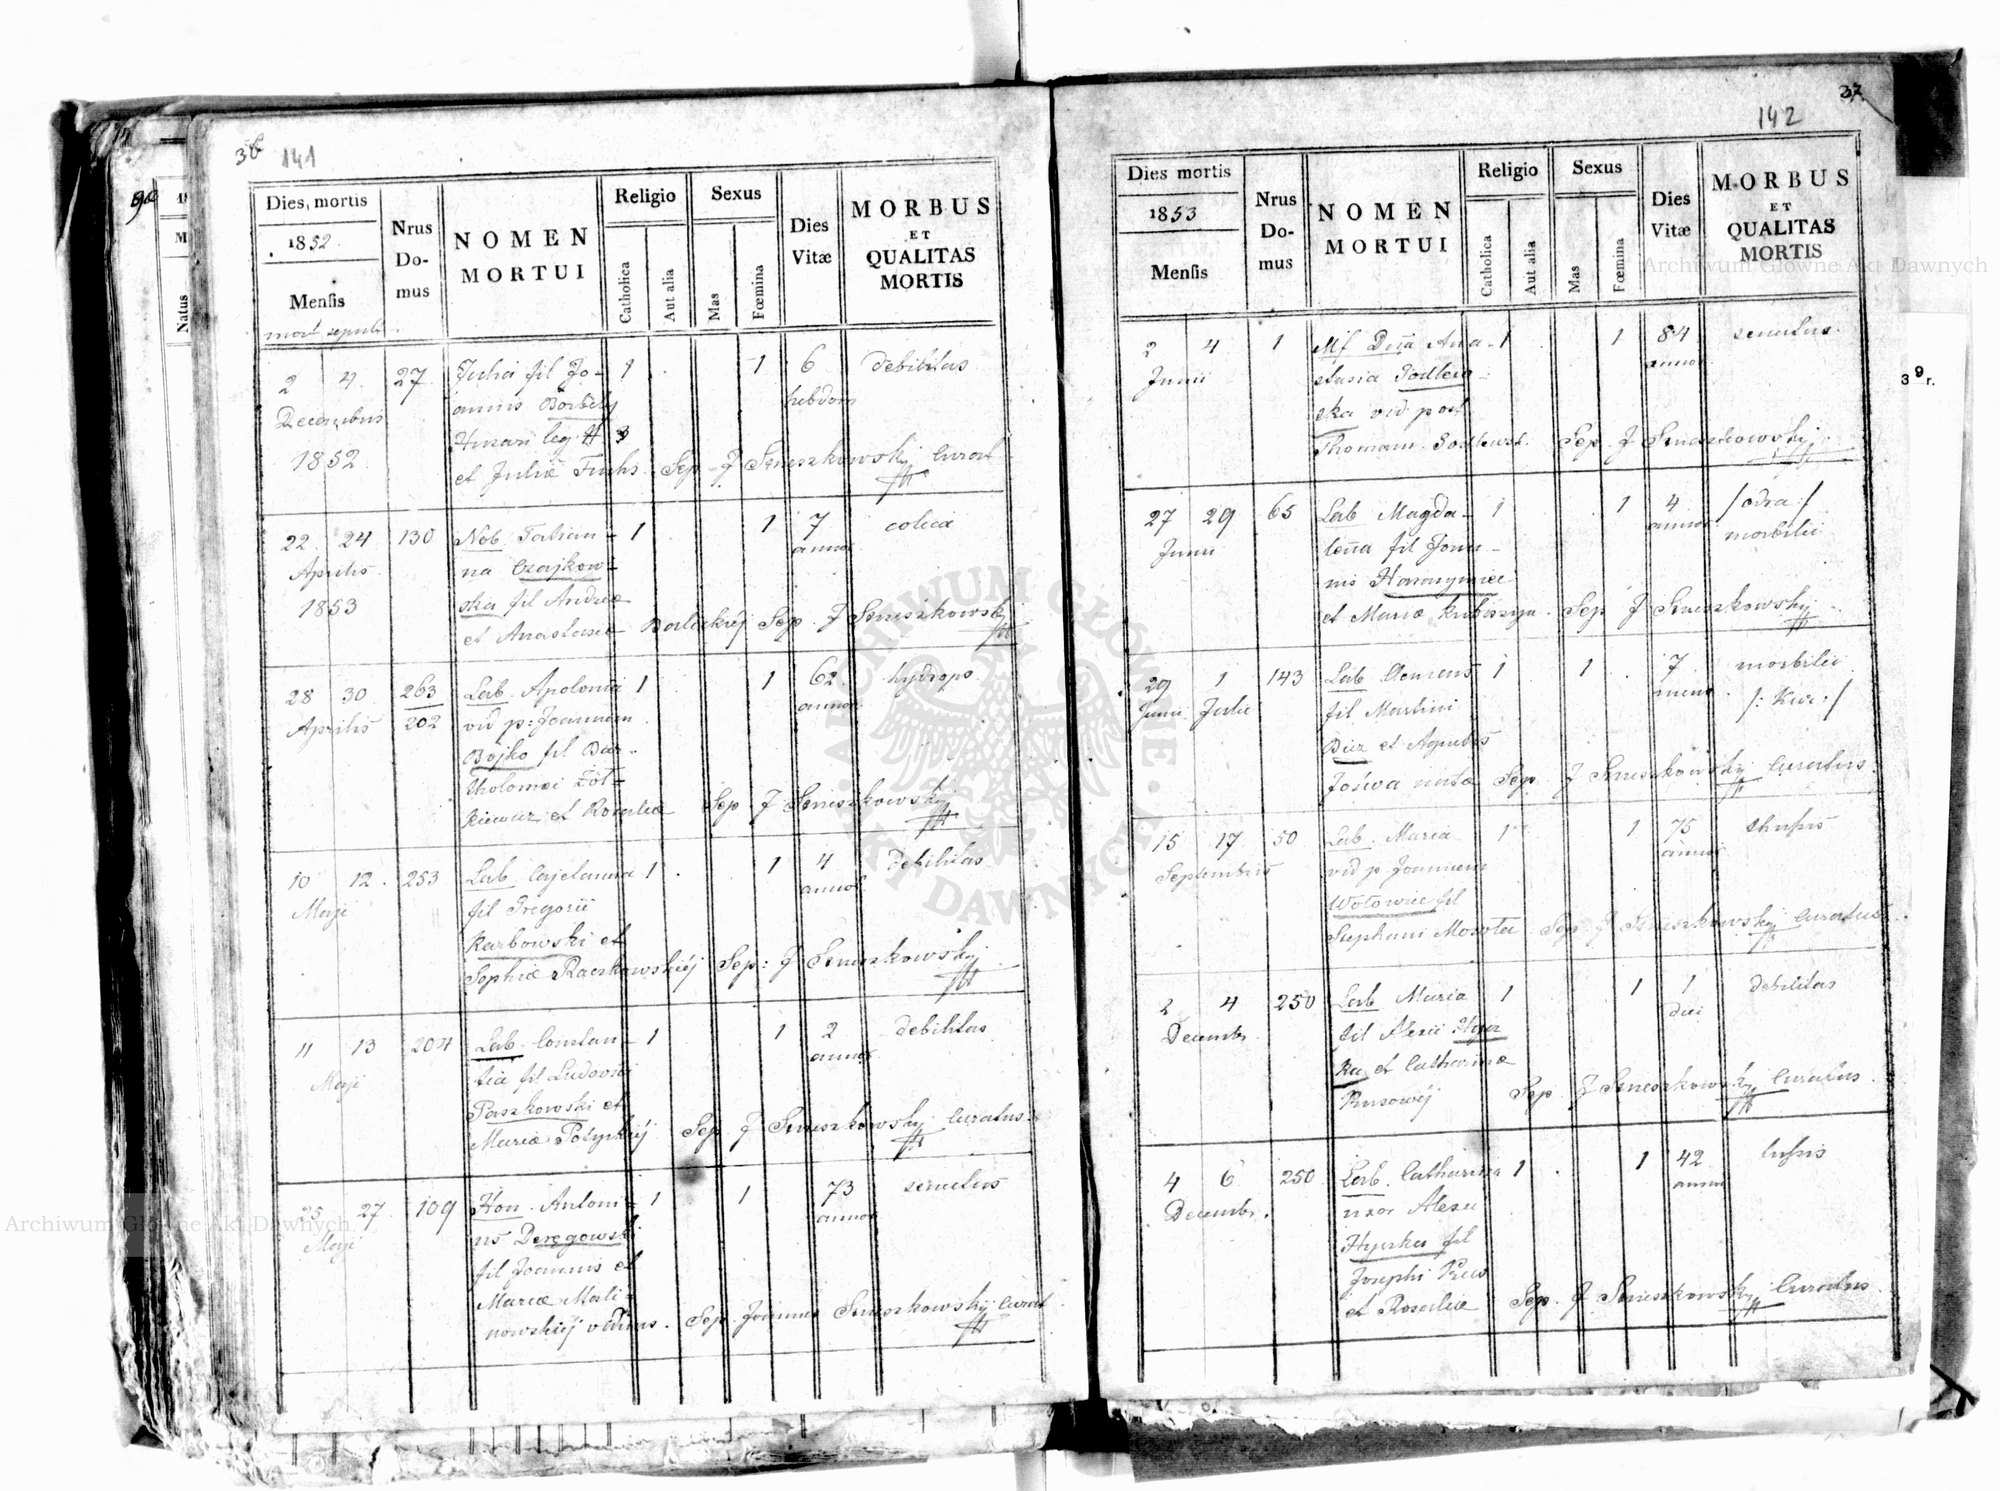 36 141
Dies mortis
1852.
Mensis
mort sepult.
Nrus Domus
NOMEN MORTUI
Religio
Catholica
Aut alia
Sexus
Mas
Fœmina
Dies Vitæ
MORBUS ET QUALITAS MORTIS
2 4 27 Julia fil Jo- 1 1 6 debilitas
Decembris annis Borbely hebdom
Husari leg H 3
1852 et Juliæ Fuchs. Sep. J Smieszkowskij Curat
22 24 130 Nob. Tatian- 1 1 7 colica
Aprilis na Czajkow- annor
1853 ska fil Andreæ
et Anastasiæ Sep. J Smieszkowskij
28 30 263 Lab. Apolonia 1 1 62 hydrops
Aprilis 202 vid p: Joannem annor
Bojko fil Bar-
tholomæi
et Rosaliæ Sep J Smieszkowskij
10 12 253 Lab Cajetanna 1 1 4 debilitas
Maji fil Gregorii annor
Karbowski et
Sophiæ Raczkowskiéj Sep: J Smieszkowskij
11 13 204 Lab. Constan- 1 1 2 debilitas
Maji tia fil Ludovici annor
Paszkowski et
Mariæ Sep J Smieszkowskij Curatus.
25 27 109 Hon. Antoni- 1 1 73 senectus
Maji us Deręgowski annor
fil Joannis et
Mariæ Mali-
nowskiéj viduus. Sep. Joannes Smieszkowskij Curat
37
142
Dies mortis
1853
Mensis
Nrus Do-mus
NOMEN MORTUI
Religio
Catholica
Aut alia
Sexus
Mas
Fœmina
Dies Vitæ
MORBUS ET QUALITAS MORTIS
2 4 1 Mf Dna Ana- 1 1 84 senectus.
Junii stasia Podlew- annor
ska vid post
Thomam Podlewsk. Sep J Smieszkowskij.
27 29 65 Lab Magda- 1 1 4 / odra /
Junii lena fil Joan- annor morbilli
nis
et Mariæ Sep J Smieszkowskij
29 1 143 Lab Clemens 1 1 7 morbilli
Junii Julii fil Martini mens
et Agnetis
natæ Sep. J Smieszkowskij Curatus.
15 17 50 Lab. Maria 1 1 75
Septembris vid p Joannem annor
Wołowiec fil
Stephani Sep J Smieszkowskij Curatus
2 4 250 Lab Maria 1 1 1 debilitas
Decembr. fil Alexii Hyr diei
ka et Catharinæ
Sep J Smieszkowskij Curatus.
4 6 250 Lab. Catharina 1 1 42
Decembr. uxor Alexii annor
fil
Josephi
et Rosaliæ Sep. J Smieszkowskij Curatus.
39r.
Archiwum Główne Akt Dawnych
Archiwum Główne Akt Dawnych
ARCHIWUM GŁÓWNE AKT DAWNYCH